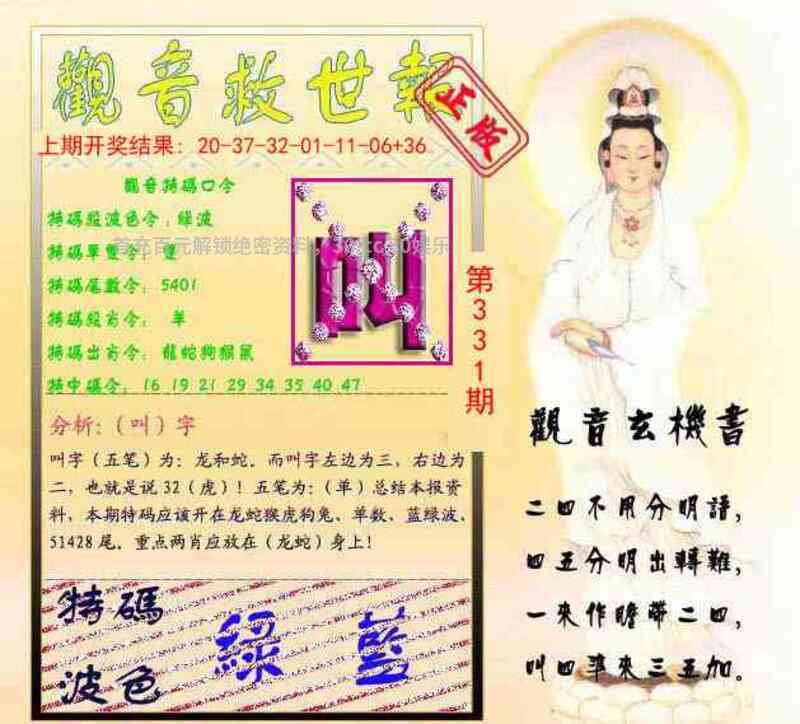 觀音救世報
正版
上期开奖结果：20-37-32-01-11-06+36
觀音特碼口令
特碼段波色令：綠波
特碼單雙令：
特碼尾數令：5401
特碼殺肖令： 羊
特碼出肖令：龍蛇狗猴鼠
特中碼令：16 19 21 29 34 35 40 47
叫
第331期
分析:（叫）字
叫字（五笔）为：龙和蛇. 而叫字左边为三，右边为
二，也就是说32（虎）！五笔为：（单）总结本报资
料，本期特码应该开在龙蛇猴虎狗兔、单数、蓝绿波、
51428尾. 重点两肖应放在（龙蛇）身上！
特碼
波色
綠 藍
觀音玄機書
二四不用分明語，
四五分明出轉難，
一來作瞻帶二四，
叫四準來三五加。